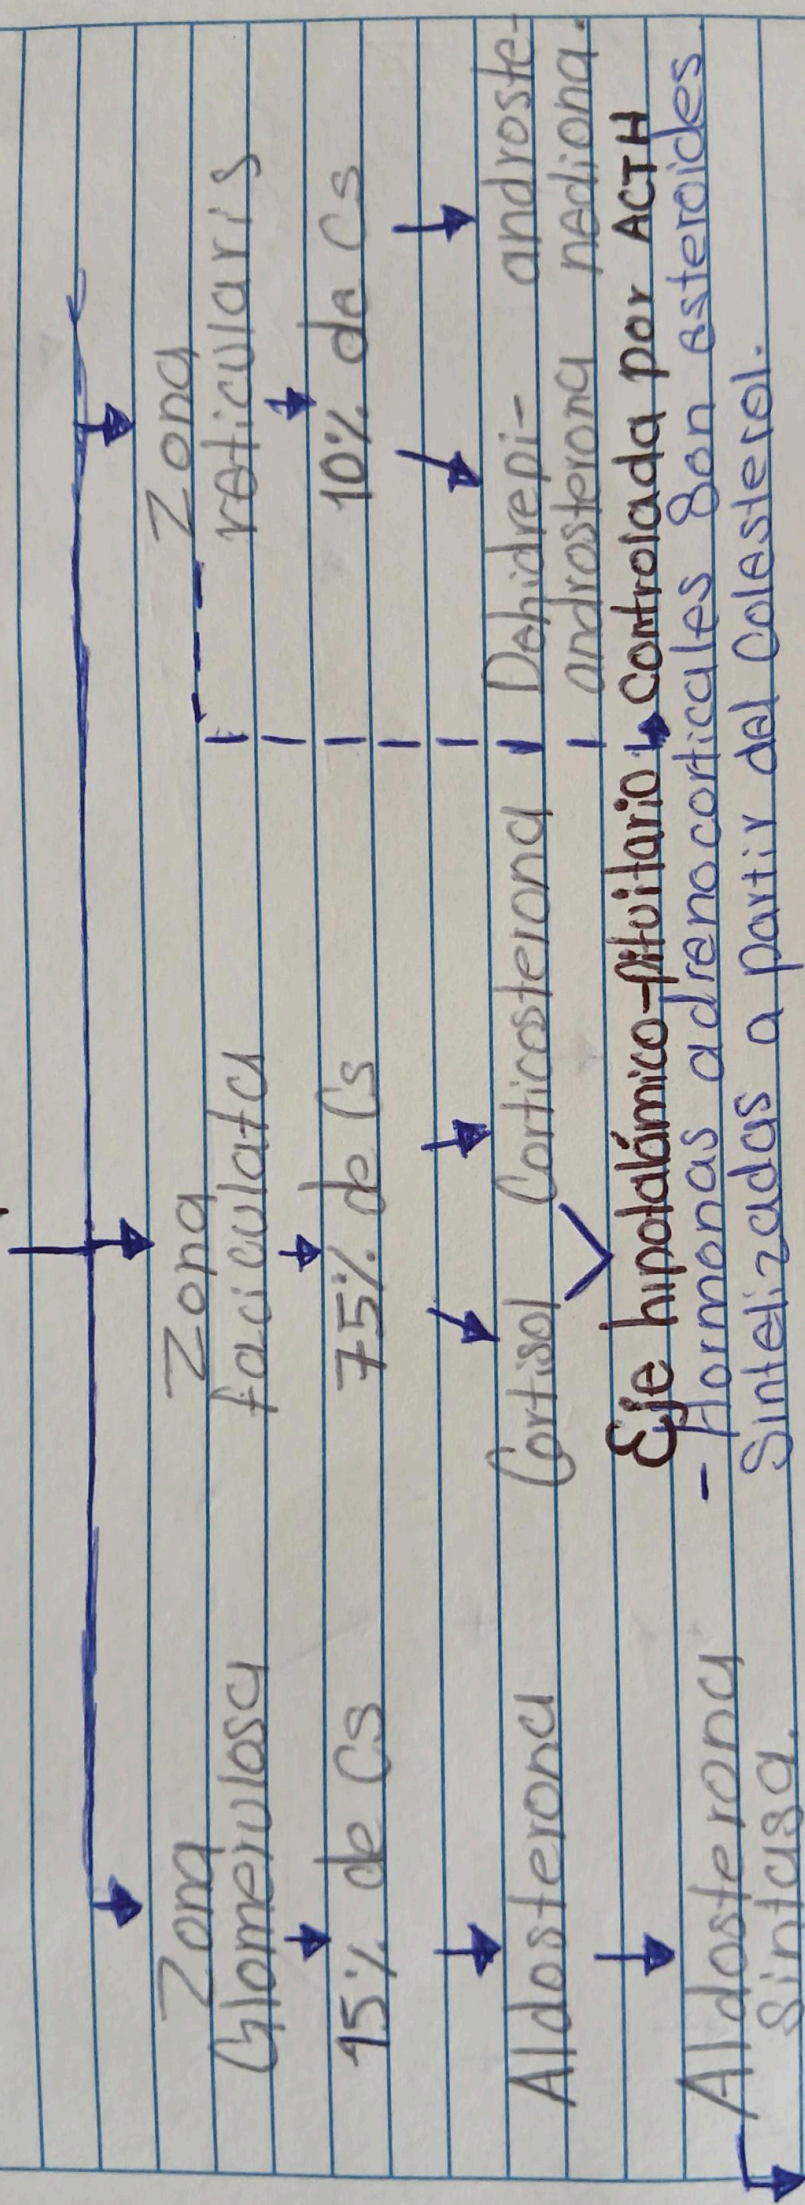 Zona
Glomerulosa
15% de Cs
Aldosterona
Aldosterona
Sintasa.
Zona
faciculata
75% de Cs
Cortisol Corticosterona
Zona
reticularis
10% de Cs
Dehidrepi-
androsterona
androste-
nediona.
Eje hipotalámico-pituitario controlada por ACTH
- Hormonas adrenocorticales son esteroides.
Sintetizadas a partir del colesterol.